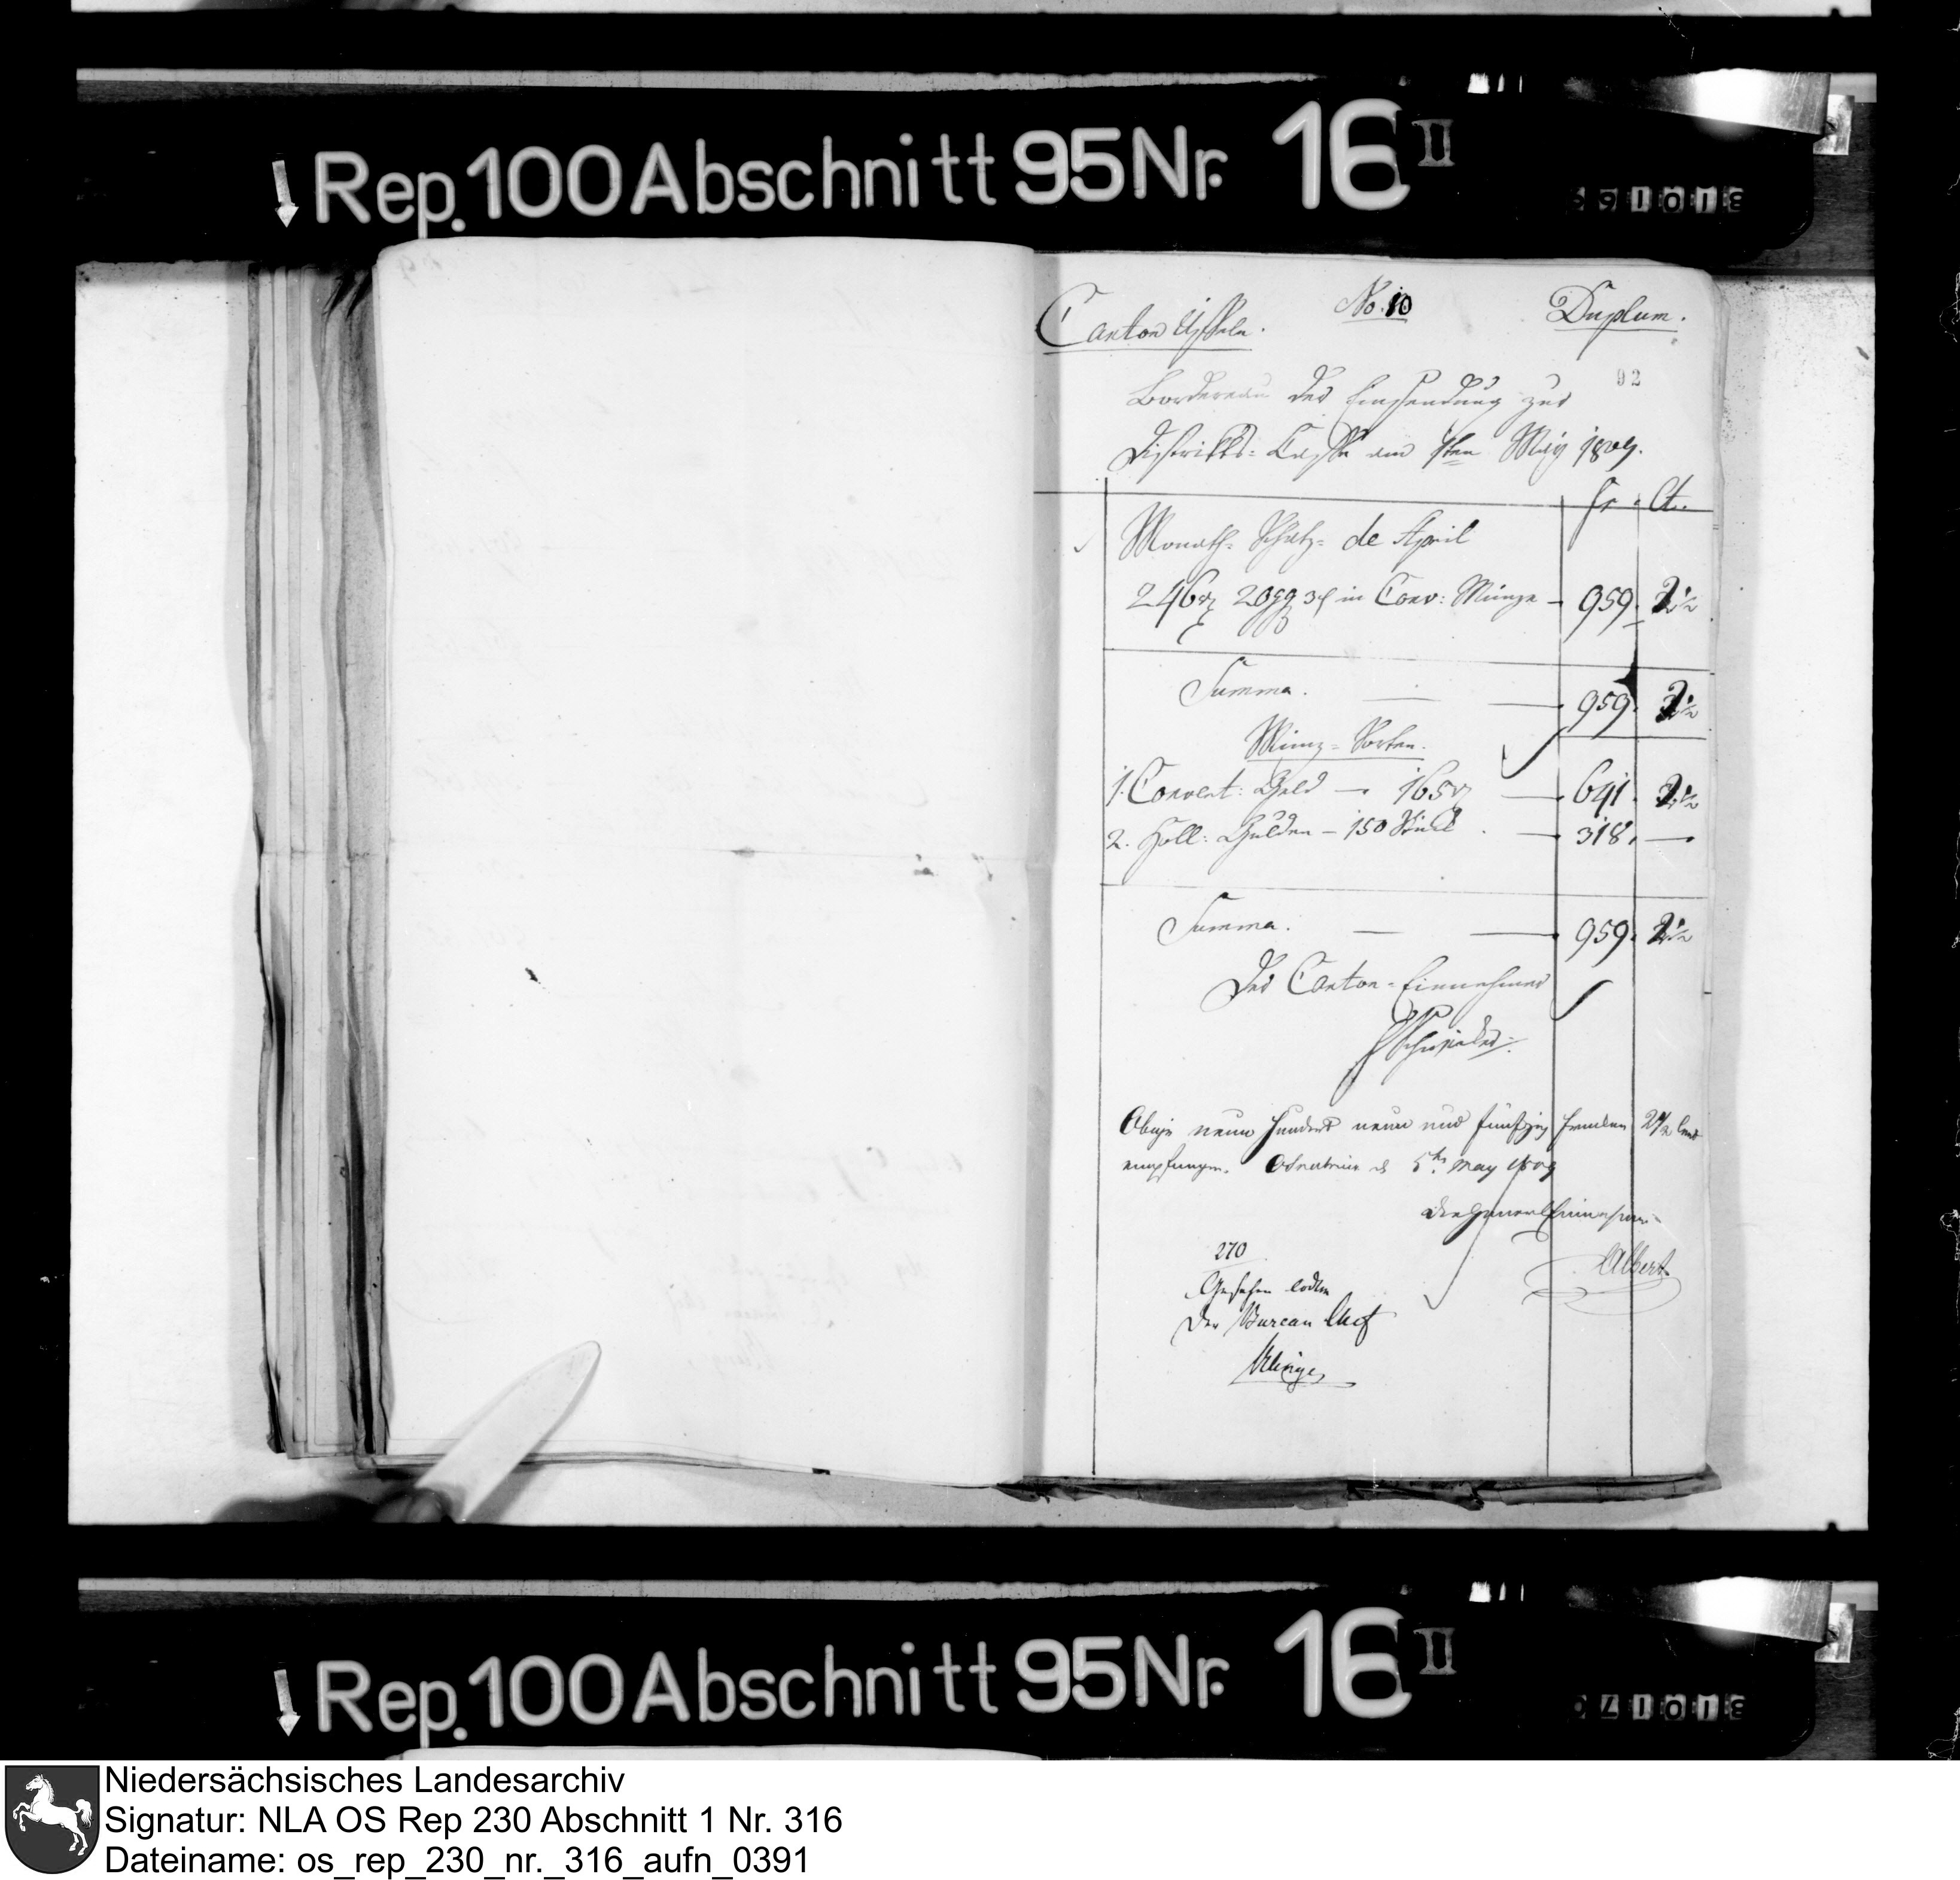 Rep. 100 Abschnitt 95 Nr. 16 II
Canton Üffeln.
No. 10
Duplum.
92
Bordereau der Einsendung zur
Distrikts= Casse am 1ten May 1809.
fr. Ct.
Monath= Schatz= de April
246 rt 20 gg 3 d in Conv: Münze — 959. 2½
Summa. — — 959. 2½
Münz= Sorten.
1. Convent: Geld — 165 rt — 641. 2½
2. Holl: Gulden — 150 Stück — 318. —
Summa. — — 959. 2½
Der Canton= Einnehmer
Obige neun hundert neun und fünfzig franken 2½ Cent
empfangen. Osnabrück d 5ten May 1809
der General Einnehmer
Albert
270
Gesehen eodem
Der Bureau Chef
Rep. 100 Abschnitt 95 Nr. 16 II
Niedersächsisches Landesarchiv
Signatur: NLA OS Rep 230 Abschnitt 1 Nr. 316
Dateiname: os_rep_230_nr._316_aufn_0391